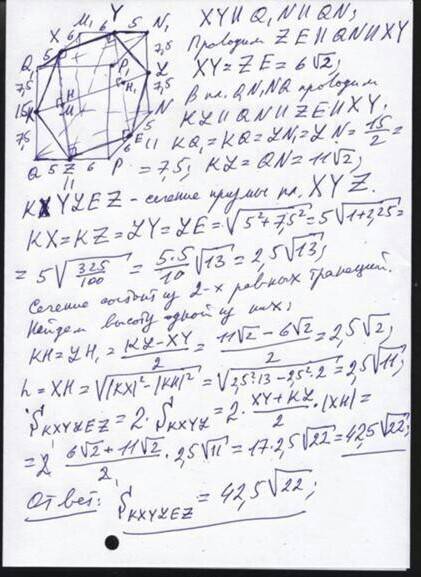 XY ∥ Q₁N₁ ∥ QN;
Проводим ZE ∥ QN ∥ XY
XY = ZE = 6√2;
В пл. QN₁NQ проводим
KL ∥ QN ∥ ZE ∥ XY.
KQ₁ = KQ = LN₁ = LN = 15/2 =
= 7,5; KL = QN = 11√2;
KXYLEZ - сечение призмы пл. XYZ.
KX = KZ = LY = LE = √(5² + 7,5²) = 5√(1+2,25) =
= 5√(325/100) = (5·5/10)√13 = 2,5√13;
Сечение состоит из 2-х равных трапеций.
Найдем высоту одной из них:
KH = LH₁ = (KL - XY)/2 = (11√2 - 6√2)/2 = 2,5√2;
h = XH = √(|KX|² - |KH|²) = √(2,5²·13 - 2,5²·2) = 2,5√11;
S KXYLEZ = 2·S KXYL = 2·(XY + KL)/2·|XH| =
= 2 (6√2 + 11√2)/2 · 2,5√11 = 17·2,5√22 = 42,5√22;
Ответ: S KXYLEZ = 42,5√22;
M₁ 6 Y 5 N₁
X 6
Q₁ 5
7,5
7,5
P₁
L
H₁
7,5
15
K
H
M
N
7,5
5
E
Q 5 Z 6 P
11